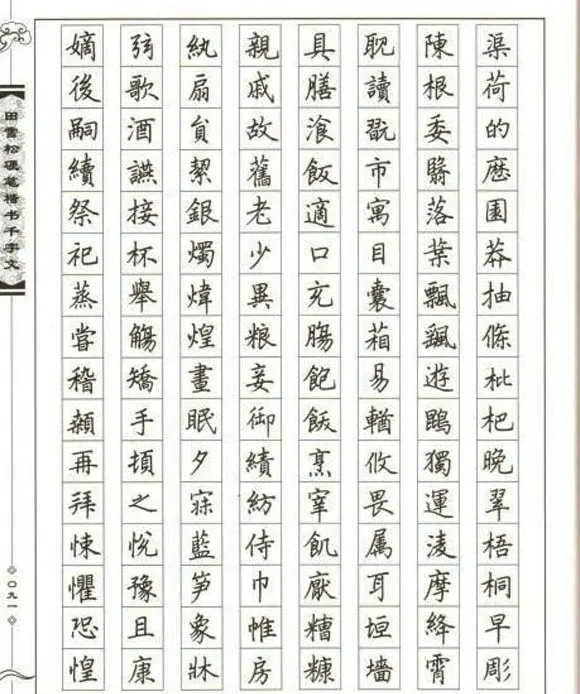 渠荷的歷園莽抽條枇杷晚翠梧桐早彫
陳根委翳落葉飄颻遊鵾獨運凌摩絳霄
耽讀翫市寓目囊箱易輶攸畏属耳垣墻
具膳湌飯適口充腸飽飫烹宰飢厭糟糠
親戚故舊老少異粮妾御績紡侍巾帷房
紈扇員絜銀燭煒煌晝眠夕寐藍笋象牀
弦歌酒讌接杯舉觴矯手頓之悅豫且康
嫡後嗣續祭祀蒸嘗稽顙再拜悚懼恐惶
田雪松硬笔楷书千字文
〇九一